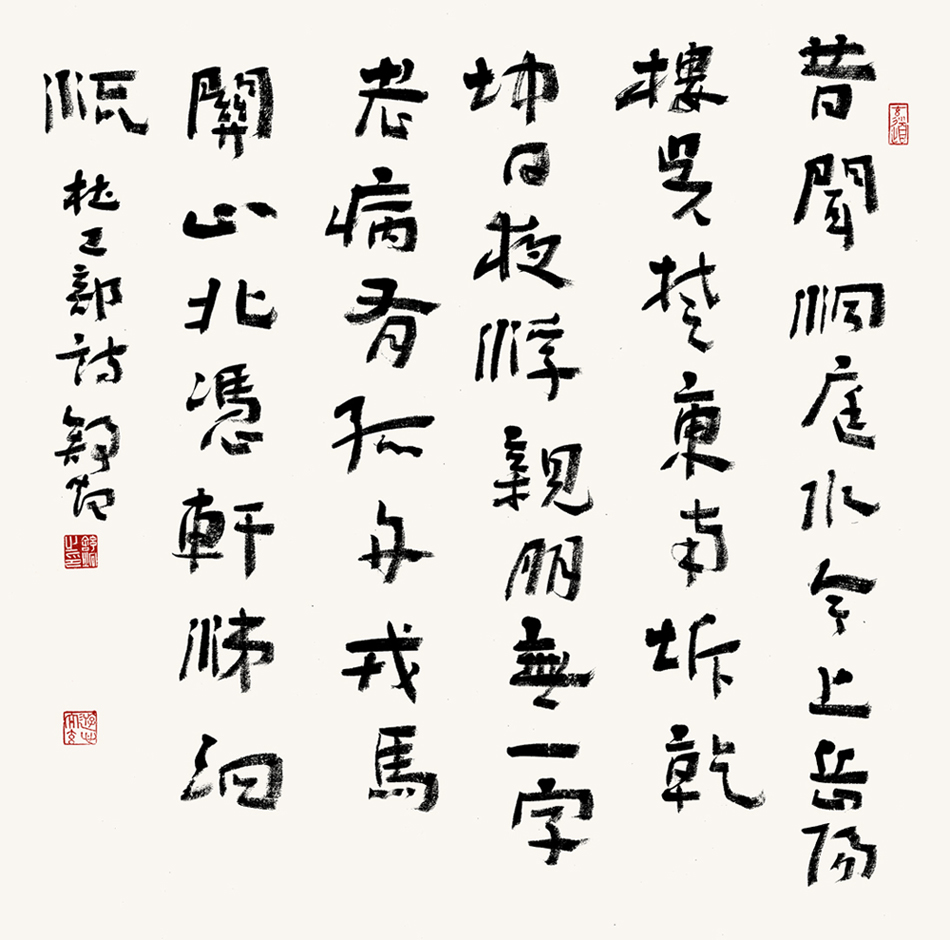 昔聞洞庭水今上岳陽
樓吳楚東南坼乾
坤日夜浮親朋無一字
老病有孤舟戎馬
關山北憑軒涕泗
流
杜工部詩舒炯
舒炯之印